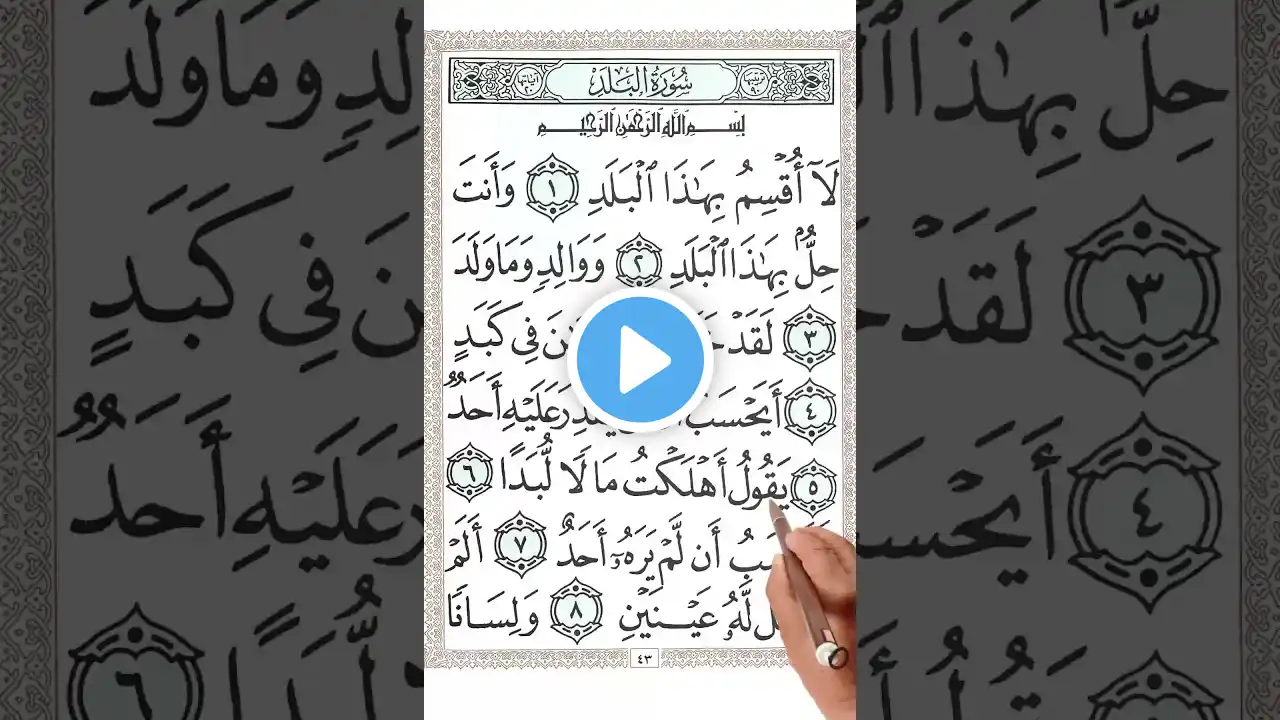 سُورَةُ الْبَلَدِ
بِسْمِ ٱللَّهِ ٱلرَّحْمَٰنِ ٱلرَّحِيمِ
لَآ أُقْسِمُ بِهَٰذَا ٱلْبَلَدِ ١ وَأَنتَ
حِلُّۢ بِهَٰذَا ٱلْبَلَدِ ٢ وَوَالِدٍ وَمَا وَلَدَ
٣ لَقَدْ فِى كَبَدٍ
٤ أَيَحْسَبُ عَلَيْهِ أَحَدٌ
٥ يَقُولُ أَهْلَكْتُ مَالًا لُّبَدًا ٦
أَن لَّمْ يَرَهُۥٓ أَحَدٌ ٧ أَلَمْ
لَّهُۥ عَيْنَيْنِ ٨ وَلِسَانًا
٤٣